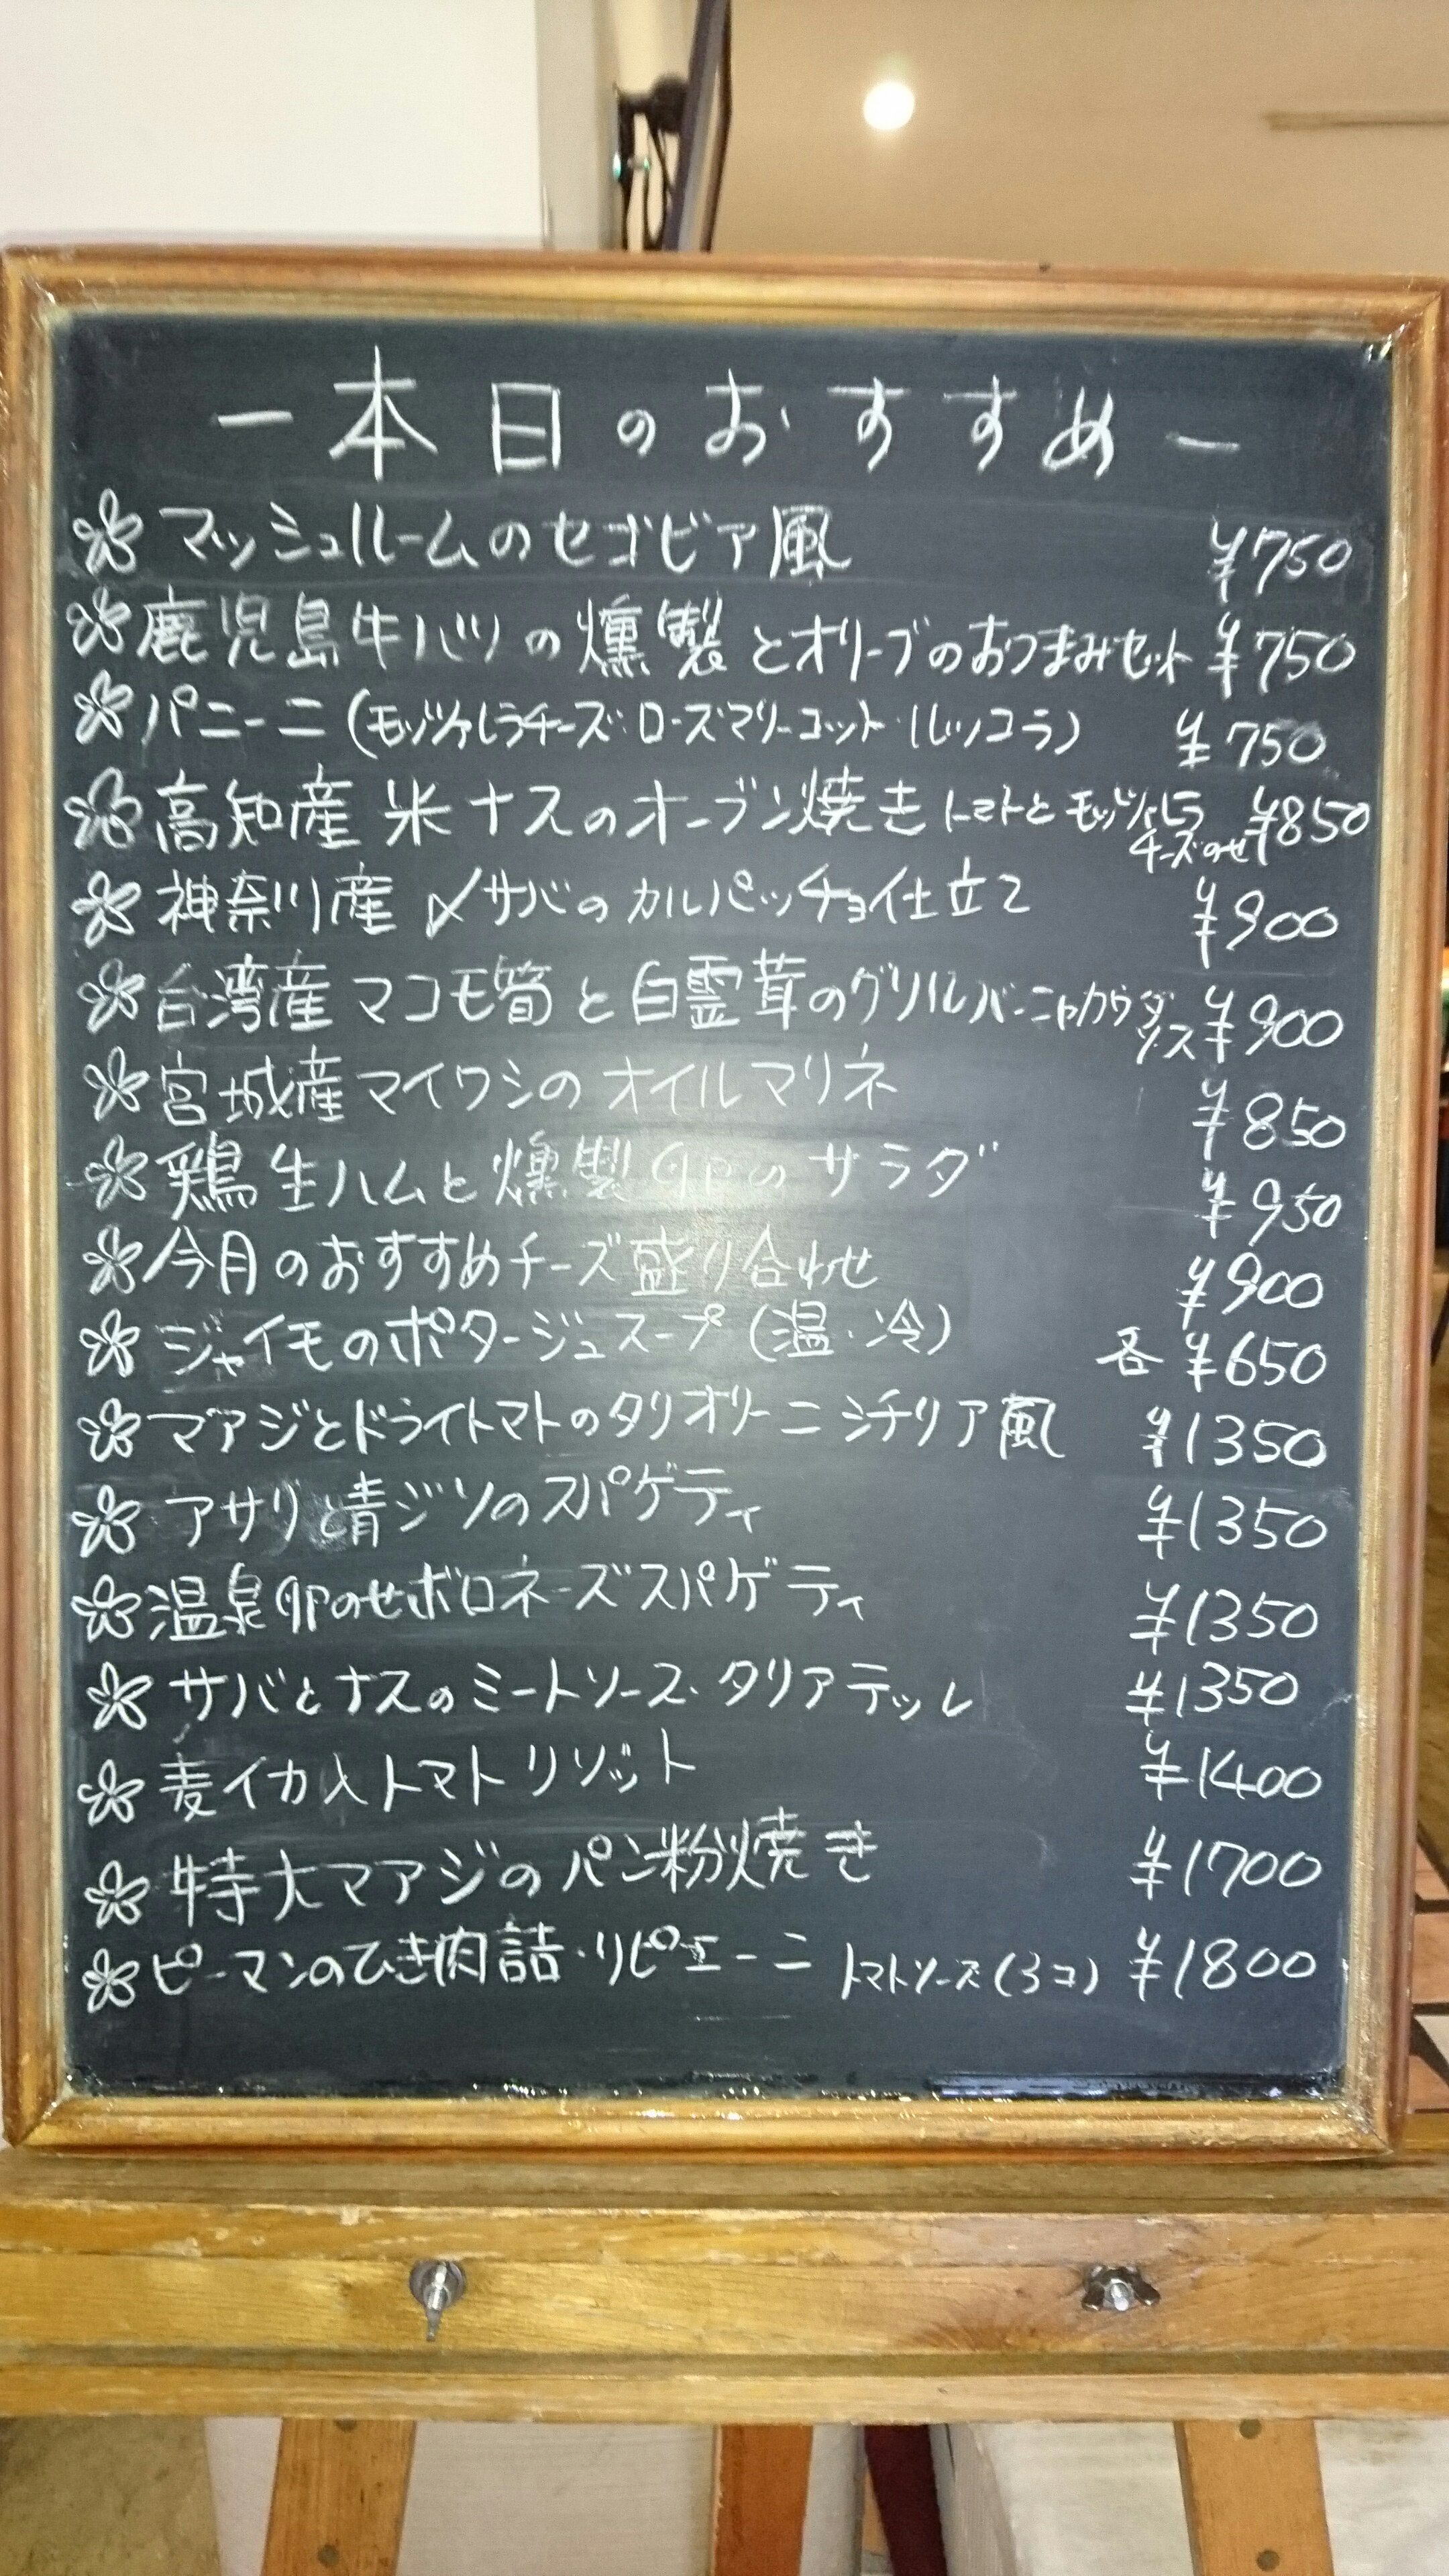 ー本日のおすすめー
マッシュルームのセゴビア風 ¥750
鹿児島牛ハツの燻製とオリーブのおつまみセット ¥750
パニーニ(モッツァレラチーズ・ローズマリーコット・ルッコラ) ¥750
高知産 米ナスのオーブン焼き トマトとモッツァレラ ¥850
チーズのせ
神奈川産 〆サバのカルパッチョ仕立て ¥900
台湾産 マコモ筍と白霊茸のグリル バーニャカウダ ¥900
ソース
宮城産マイワシのオイルマリネ ¥850
鶏生ハムと燻製卵のサラダ ¥950
今月のおすすめチーズ盛り合わせ ¥900
ジャイモのポタージュスープ(温・冷) 各 ¥650
マアジとドライトマトのタリオリーニ シチリア風 ¥1350
アサリと青ジソのスパゲティ ¥1350
温泉卵のせボロネーズスパゲティ ¥1350
サバとナスのミートソース・タリアテッレ ¥1350
麦イカ入トマトリゾット ¥1400
特大マアジのパン粉焼き ¥1700
ピーマンのひき肉詰・リピエーニ トマトソース(3コ) ¥1800